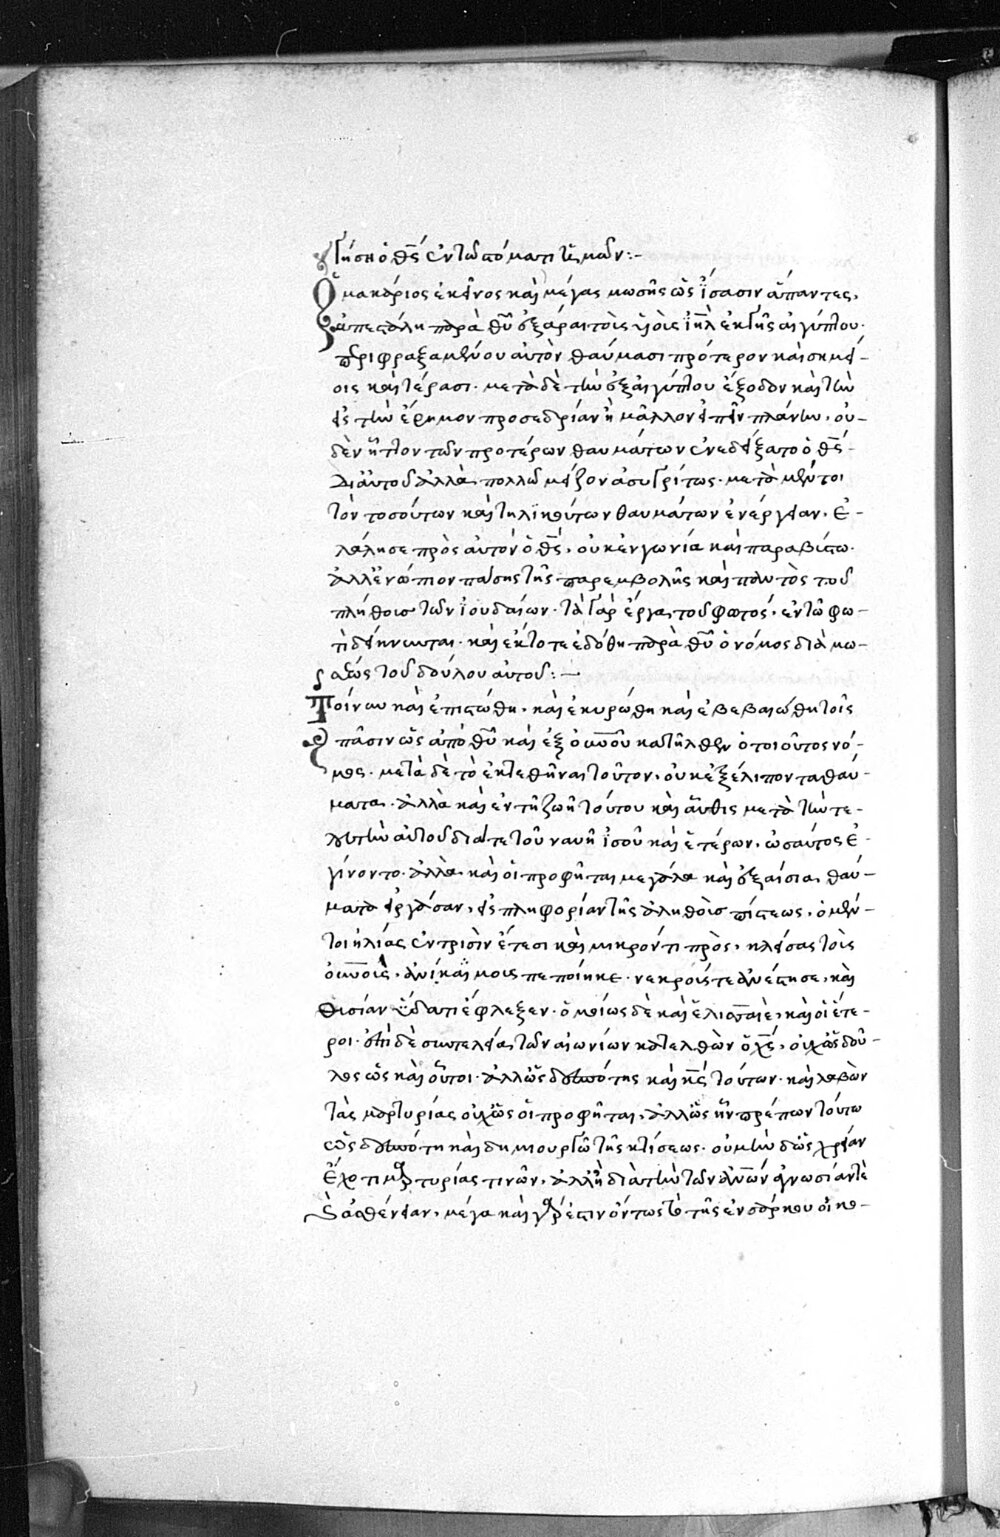 γήσῃ ὁ θς ἐν τῶ στόματι ἡμῶν:-
Ὁ μακάριος ἐκεῖνος καὶ μέγας μωσῆς ὡς ἴσασιν ἅπαντες,
ἀπεστάλη παρὰ θῦ ἐξᾶραι τοὺς υἱοὺς ιηλ ἐκ γῆς αἰγύπτου.
περιφραξαμένου αὐτὸν θαύμασι πρότερον καὶ σημεί-
οις καὶ τέρασι. μετὰ δὲ τὴν ἐξ αἰγύπτου ἔξοδον καὶ τὴν
εἰς τὴν ἔρημον προσεδρίαν ἢ μᾶλλον εἰπεῖν πλάνην, οὐ-
δὲν ἧττον τῶν προτέρων θαυμάτων ἐνεδείξατο ὁ θς
δι αὐτοῦ ἀλλὰ πολλῶ μείζον ἀσυγρίτως. μετὰ μέντοι
τὸν τοσούτων καὶ τηλικούτων θαυμάτων ἐνέργειαν, ἐ-
λάλησε πρὸς αὐτὸν ὁ θς, οὐκ ἐν γωνία καὶ παραβύστω.
ἀλλ ἐνώπιον πάσης τῆς παρεμβολῆς καὶ παντὸς τοῦ
πλήθους τῶν ἰουδαίων. τὰ γὰρ ἔργα τοῦ φωτὸς, ἐν τῶ φω-
τὶ δείκνυνται. καὶ ἔκτοτε ἐδόθη παρὰ θῦ ὁ νόμος διὰ μω-
σέως τοῦ δούλου αὐτοῦ:-
Τοίνυν καὶ ἐπιστώθη, καὶ ἐκυρώθη καὶ ἐβεβαιώθη τοῖς
πᾶσιν ὡς ἀπὸ θῦ καὶ ἐξ οὐνοῦ κατῆλθεν ὁ τοιοῦτος νό-
μος. μετὰ δὲ τὸ ἐκτεθῆναι τοῦτον, οὐκ ἐξέλιπον τὰ θαύ-
ματα. ἀλλὰ καὶ ἐν τῆ ζωῆ τούτου καὶ αὖθις μετὰ τὴν τε-
λευτὴν αὐτοῦ διά τε τοῦ ναυῆ ἰσοῦ καὶ ἑτέρων, ὡσαύτος ἐ-
γίνοντο. ἀλλὰ καὶ οἱ προφῆται μεγάλα καὶ ἐξαίσια θαύ-
ματα εἰργάσαν, εἰς πληφορίαν τῆς ἀληθοῦς πίστεως. ὁ μέν-
τοι ἠλίας ἐν τρισὶν ἔτεσι καὶ μικρόν τι πρὸς, κλείσας τοὺς
οὐνοὺς, ἀνίκμοις πεποίηκε. νεκρούς τε ἀνέστησε, καὶ
θυσίαν ὕδατι ἔφλεξεν. ὁμοίως δὲ καὶ ἐλισσαιὲ, καὶ οἱ ἕτε-
ροι. ἐπὶ δὲ συντελεία τῶν αἰωνίων κατελθὼν ὁ χς, οὐχ ὡς δοῦ-
λος ὡς καὶ οὗτοι. ἀλλ ὡς δεσπότης καὶ κς τούτων. καὶ λαβὼν
τὰς μαρτυρίας οὐχ ὡς οἱ προφῆται, ἀλλ ὡς ἦν πρέπων τούτω
ὡς δεσπότη καὶ δημιουργῶ τῆς κτίσεως. οὐ μὴν δ ὡς χρείαν
ἔχοντι μαρτυρίας τινῶν, ἀλλ ἢ διὰ τὴν τῶν ἀνων ἀγνωσίαν τὲ
καὶ ἀσθένειαν, μέγα καὶ γὰρ ἐστιν ὄντως τὸ τῆς ἐνσάρκου οἰκο-